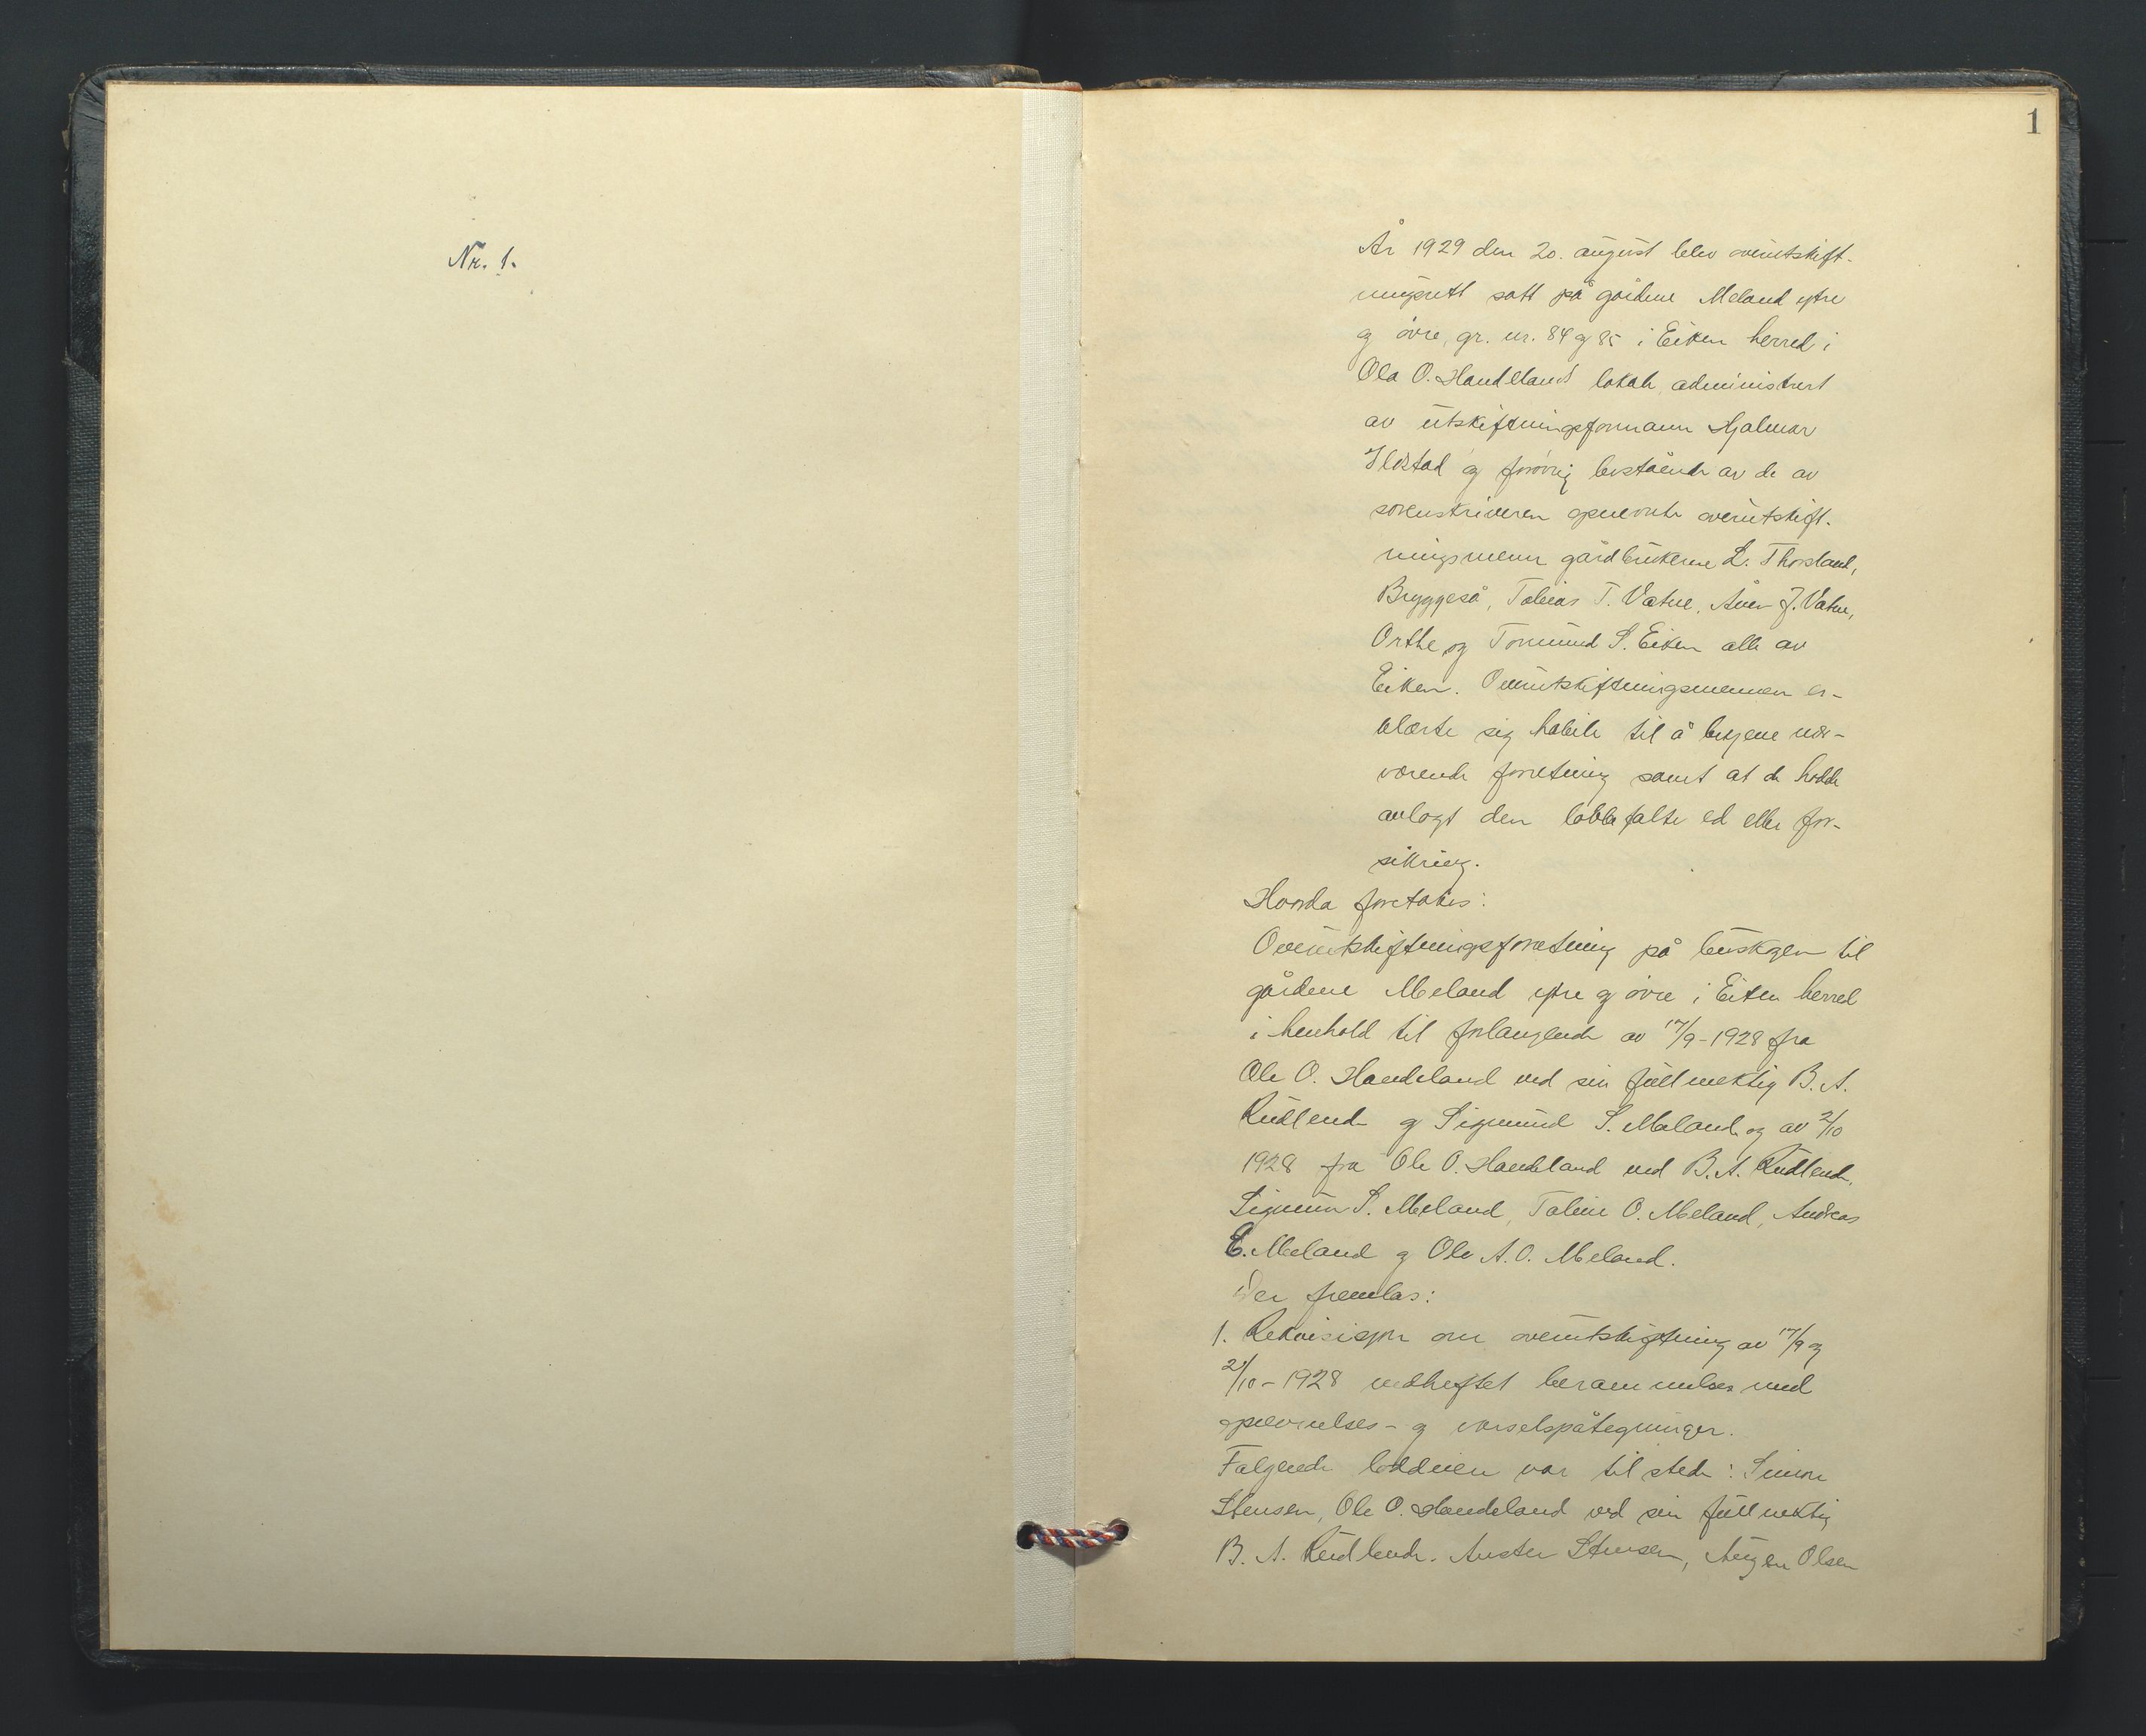 Nr. 1.
1
År 1929 den 20. august blev overutskift-
ningsrett satt på gårdene Meland ytre
og øvre, gr. nr. 84 og 85 i Eiken herred i
Ola O. Handelands lokale administrert
av utskiftningsformann Hjalmar
og forøvrig bestående av de av
sorenskriveren opnevnte overutskift-
ningsmenn gårdbrukerne L. Thorsland,
Bryggeså, Tobias T. Vatne, J. Vatne,
og Tormund S. Eiken alle av
Eiken. Overutskiftningsmennen er-
klærte sig habile til å betjene nær-
værende forretning samt at de hadde
avlagt den lovbefalte ed eller for-
sikring.
Hvorda foretokes:
Overutskiftningsforretning på buskogen til
gårdene Meland ytre og øvre i Eiken herred
i henhold til forlangende av 17/9-1928 fra
Ole O. Handeland ved sin fullmektig B. A.
Rudlende og Sigmund S. Meland og av 2/10
1928 fra Ole O. Handeland ved B. A. Rudlende,
Sigmund S. Meland, Taline O. Meland, Andreas
E. Meland og Ole A. O. Meland.
Der fremlas:
1. Rekvisisjon om overutskiftning av 17/9 og
2/10-1928 vedheftet berammelse med
opnevnelses- og varselspåtegninger.
Følgende loddeier var til stede: Simon
Stensen, Ole O. Handeland ved sin fullmektig
B. A. Rudlende. Stensen, Olsen